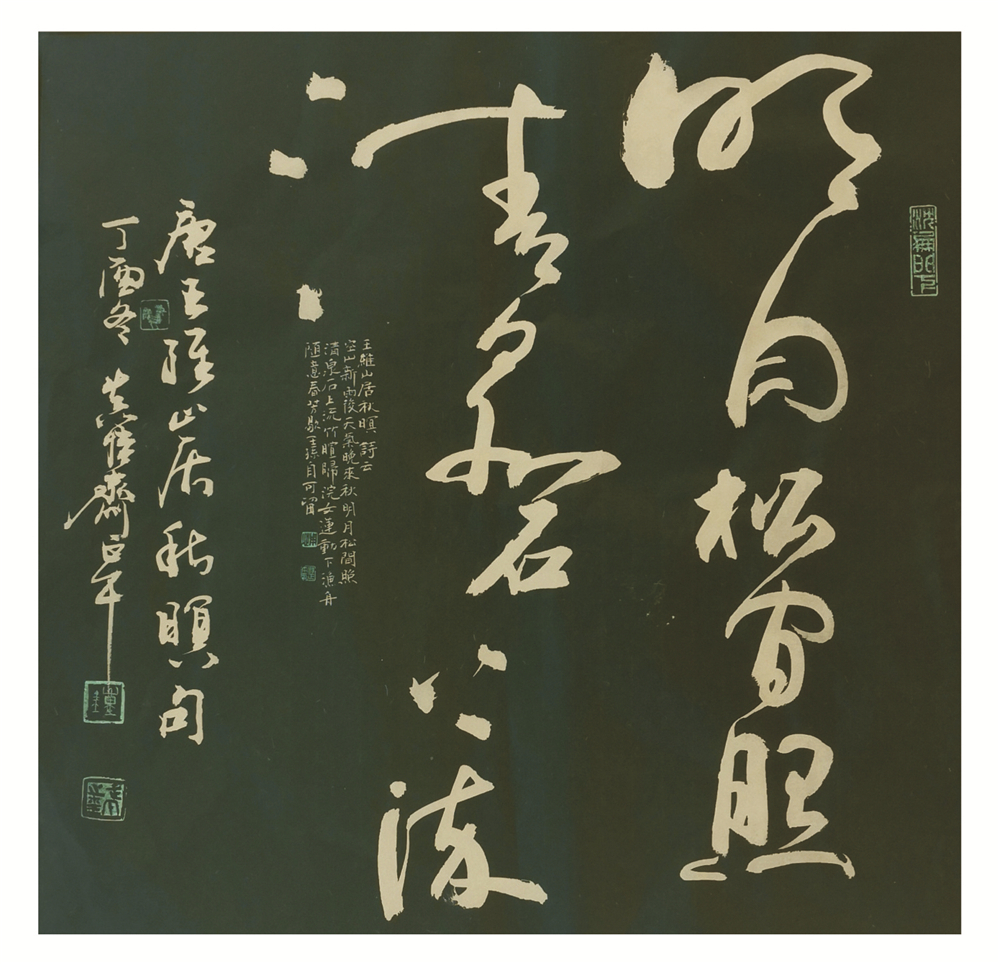 沈鵬門下
明月松间照
清泉石上流
王維山居秋暝詩云
空山新雨後天氣晚來秋明月松間照
清泉石上流竹喧歸浣女蓮動下漁舟
随意春芳歇王孫自可留
唐王維山居秋暝句
丁酉冬